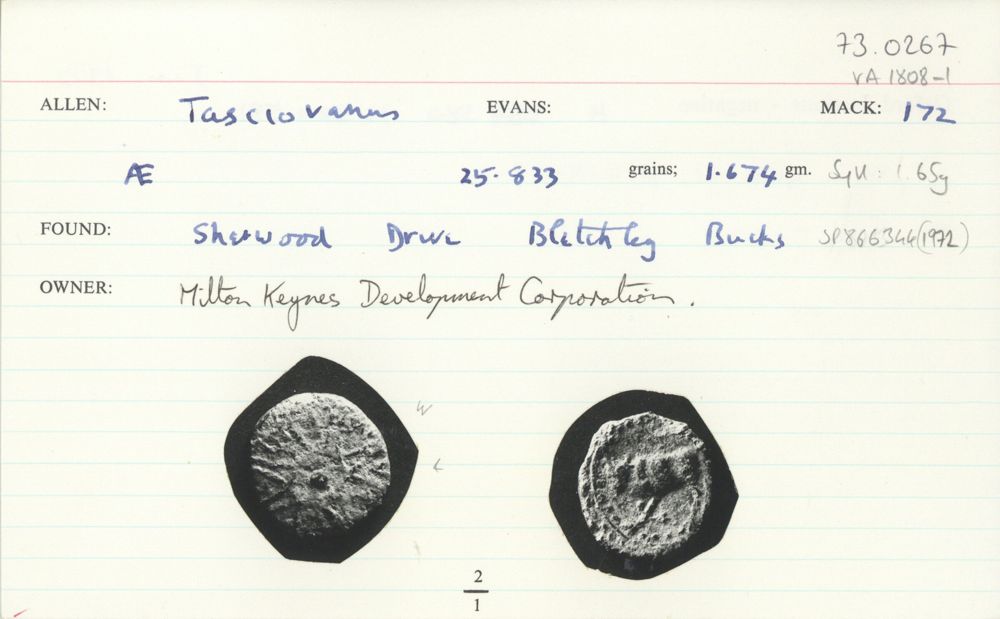 73.0267
VA 1808-1
ALLEN: Tasciovanus EVANS: MACK: 172
Æ 25.833 grains; 1.674 gm. 1.65g
FOUND: Sherwood Drive Bletchley Bucks SP866344 (1972)
OWNER: Milton Keynes Development Corporation.
2
1